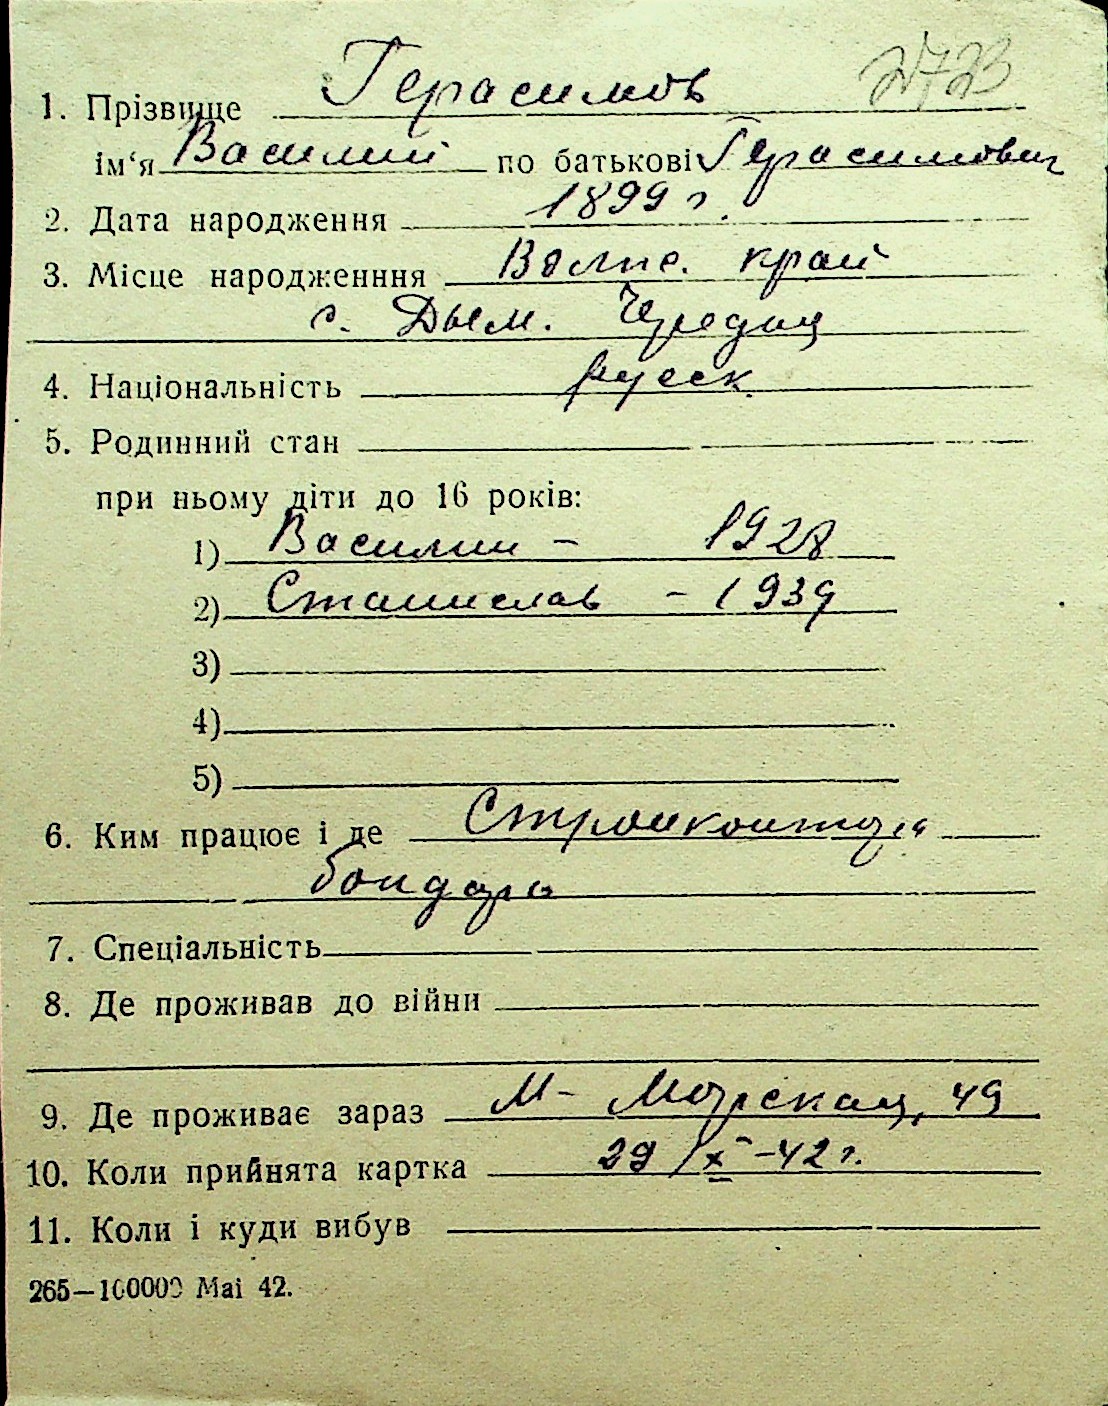 2723
1. Прізвище Герасимов
ім‘я Василий по батькові Герасимович
2. Дата народження 1899 г.
3. Місце народженння край
с. Дым.
4. Національність русск.
5. Родинний стан
при ньому діти до 16 років:
1) Василий - 1928
2) Станислав - 1939
3)
4)
5)
6. Ким працює і де Стройконтора
бондарь
7. Спеціальність
8. Де проживав до війни
9. Де проживає зараз М- Морская, 49
10. Коли прийнята картка 29/X-42 г.
11. Коли і куди вибув
265—100000 Mai 42.